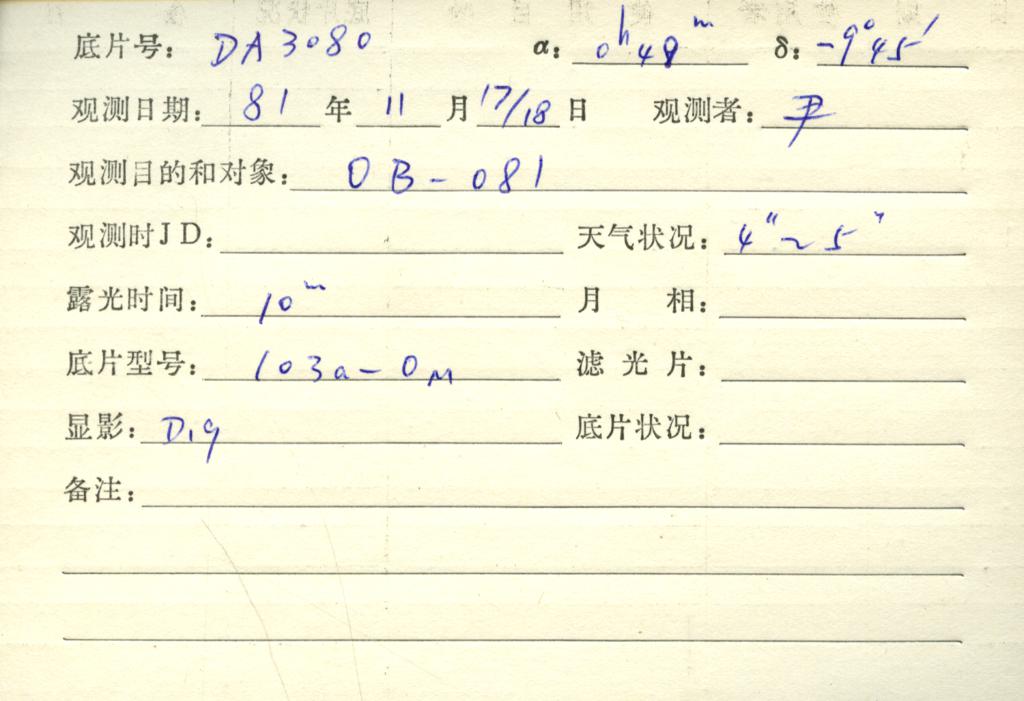 底片号: DA3080 α: 0ʰ48ᵐ δ: -9°45′
观测日期: 81 年 11 月 17/18 日 观测者: 尹
观测目的和对象: OB-081
观测时JD: 天气状况: 4″~5″
露光时间: 10ᵐ 月 相:
底片型号: 103a-O 滤光片:
显影: D19 底片状况:
备注: